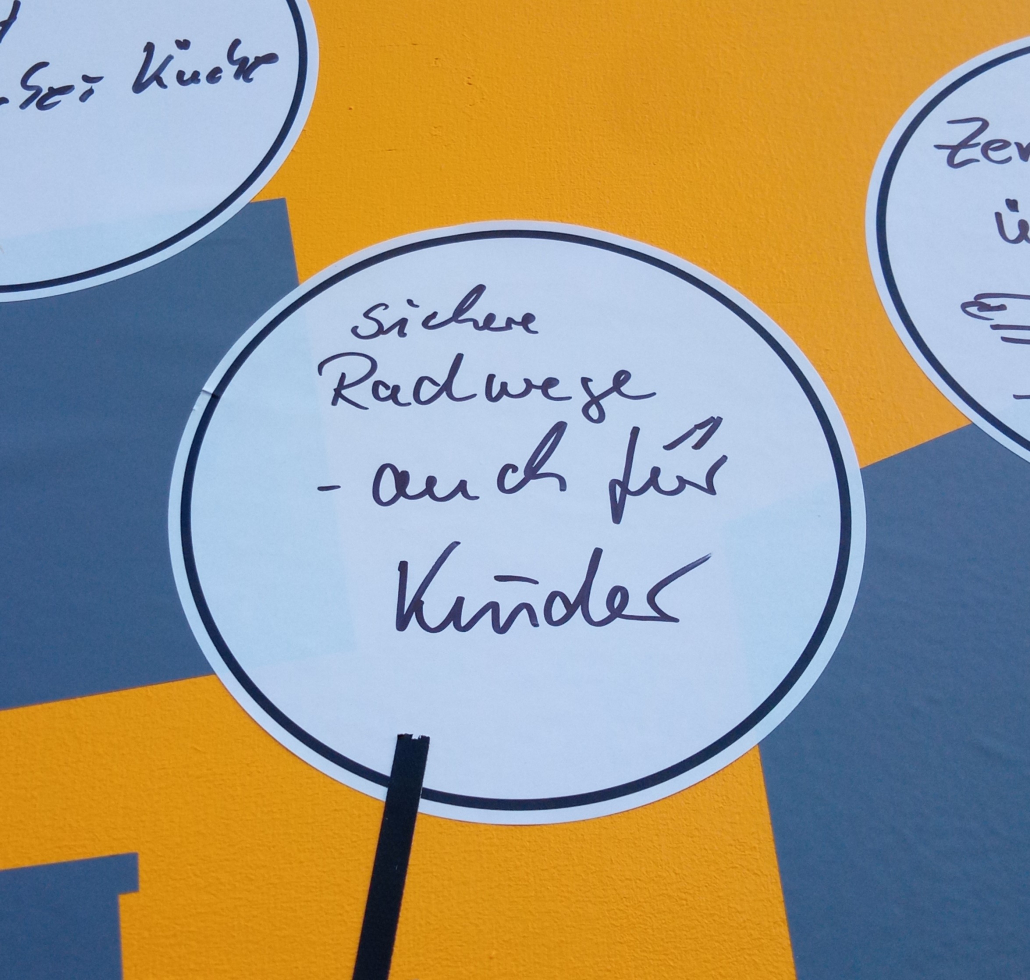 Küche
sichere
Radwege
- auch für
Kinder